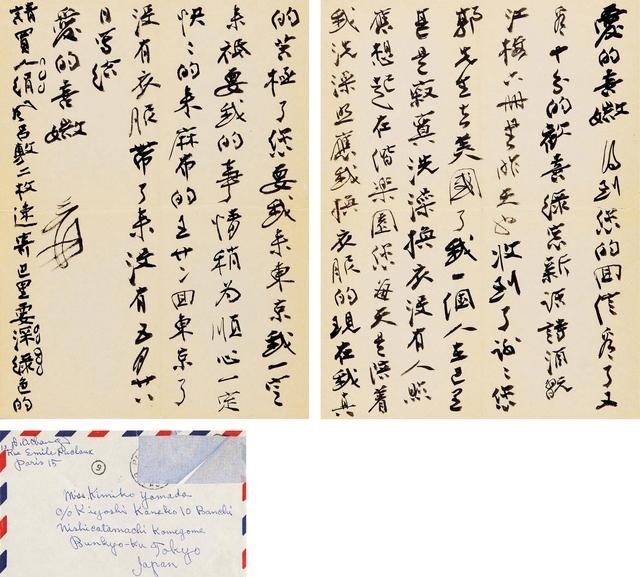 愛的喜媺 得到您的回信看了又
看十分的歡喜
江梅六冊書昨天也收到了謝〻您
郭先生去美國了我一個人在巴里
甚是寂寞洗澡換衣沒有人照
應想起在偕樂園您每天是陪着
我洗澡照應我換衣服的現在我真
的苦極了您要我來東京我一定
來祇要我的事情稍為順心一定
快〻的來麻布的王廿二回東京了
沒有衣服帶了來沒有五月廿六
日寫給
愛的喜媺
請買人絹呂敷二枚速寄巴里要深緑色的
Chang
Rue Emile Duclaux
Paris 15
Miss. Kimiko Yamada
c/o Kiyoshi Kaneko 10 Banchi
Nishikatamachi Komagome
Bunkyo-ku Tokyo
Japan